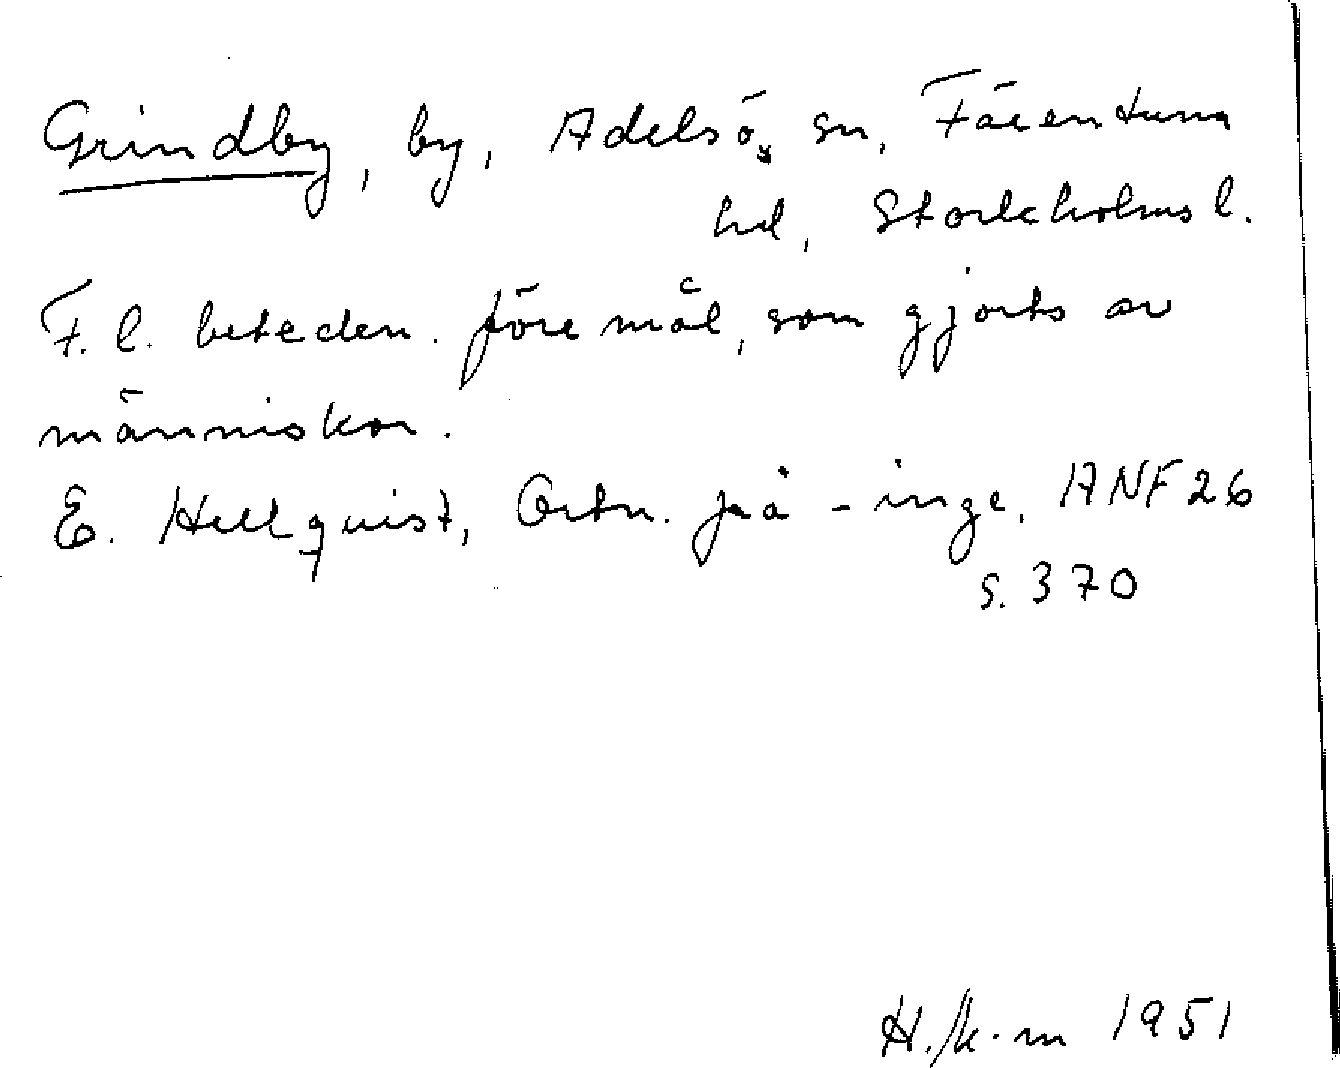 Grindby, by, Adelsö, sn, Färentuna
hd, Stockholms l.
F. l. beteckn. föremål, som gjorts av
människor.
E. Hellquist, Ortn. på -inge, ANF 26
s. 370
1951